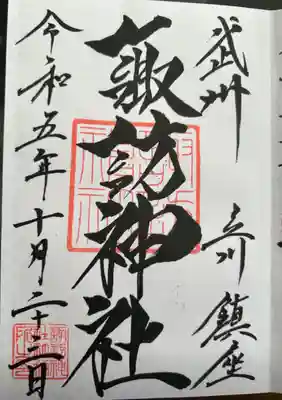 武州 立川 鎮座
諏訪神社
令和五年十月二十三日